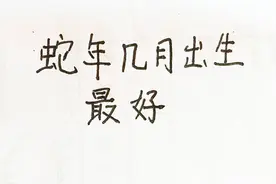 蛇年几月出生
最好